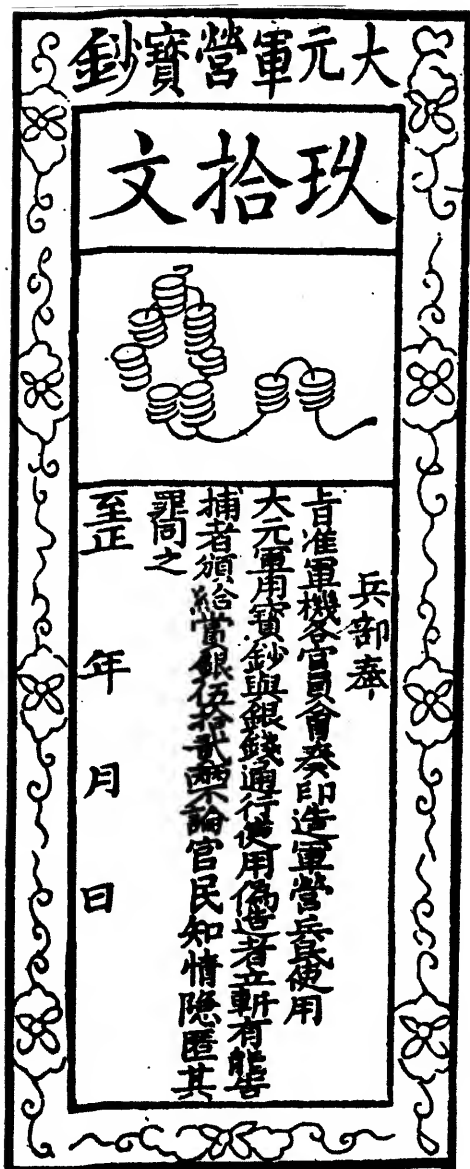 大元軍營寶鈔
玖拾文
兵部奉
旨准軍機各官員會奏印造軍營兵民使用
大元軍用寶鈔與銀錢通行使用偽造者立斬有能告
捕者頒給賞銀伍拾貳兩不論官民知情隱匿其
罪同之
至正 年 月 日